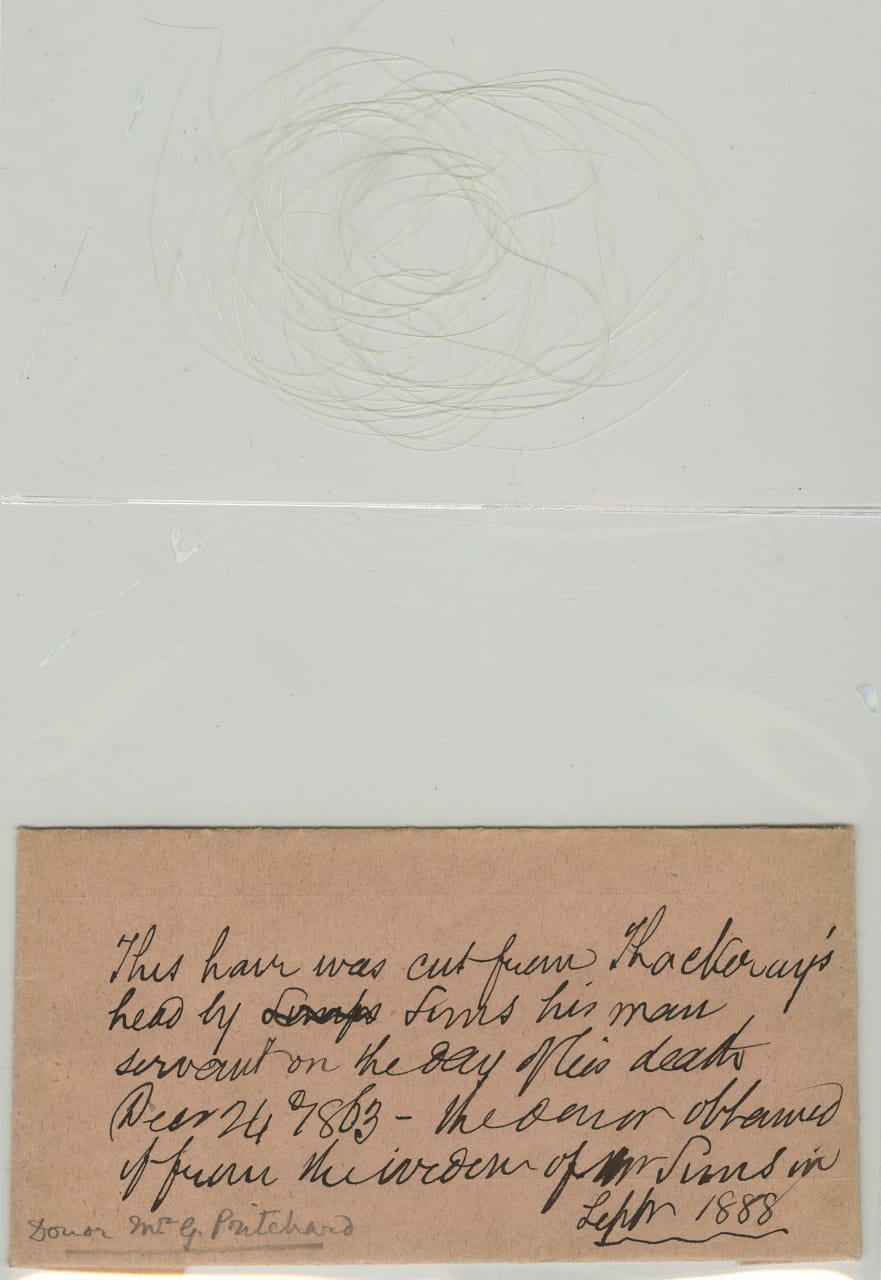 This hair was cut from Thackeray's
head by Simps Sims his man
servant on the day of his death
Decr 24 1863 - the donor obtained
it from the widow of Mr Sims in
Septr 1888
Donor Mr G. Pritchard